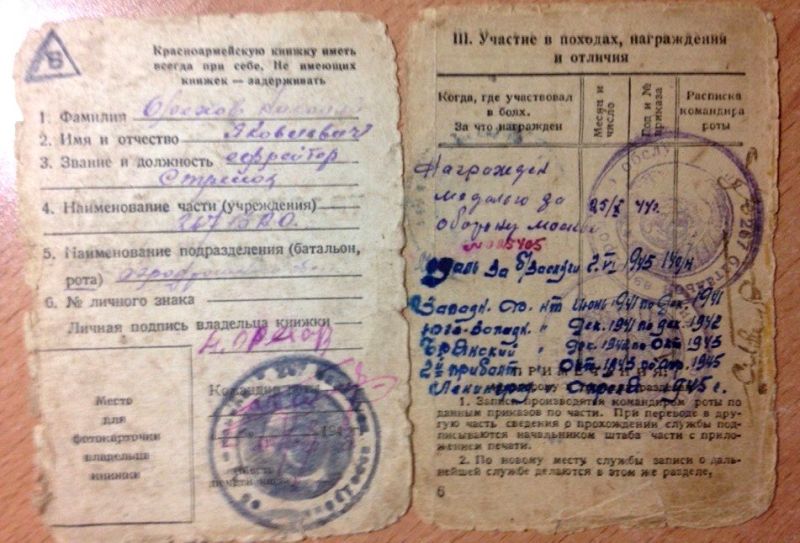 Красноармейскую книжку иметь
всегда при себе. Не имеющих
книжек — задерживать
1. Фамилия Орехов Николай
2. Имя и отчество Яковлевич
3. Звание и должность ефрейтор
Стрелок
4. Наименование части (учреждения)
267 БАО.
5. Наименование подразделения (батальон,
рота)
6. № личного знака
Личная подпись владельца книжки
Н. Орехов
Место
для
фотокарточки
владельца
книжки
III. Участие в походах, награждения
и отличия
Когда, где участвовал
в боях.
За что награжден
Месяц и
число
Год и №
приказа
Расписка
командира
роты
Награжден
медалью за
оборону Москвы
25/X 44г.
2. VI 1945
Западн. Июнь 1941 по Дек. 1941
Юго-Западн. " Дек. 1941 по дек. 1942
Брянский " Дек. 1942 по Окт 1943
2й прибалт " Окт. 1943 по Апр. 1945
1945 г.
ПРИМЕЧАНИЯ:
1. Записи производятся командиром роты по
данным приказов по части. При переводе в дру-
гую часть сведения о прохождении службы под-
писываются начальником штаба части с прило-
жением печати.
2. По новому месту службы записи о даль-
нейшей службе делаются в этом же разделе,
6